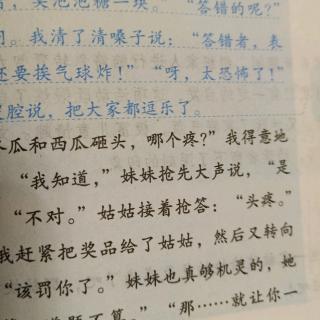 ，奖泡泡糖一块。”“答错的呢？”
。我清了清嗓子说：“答错者，表
还要挨气球炸！”“呀，太恐怖了！”
腔说，把大家都逗乐了。
瓜和西瓜砸头，哪个疼？”我得意地
“我知道，”妹妹抢先大声说，“是
“不对。”姑姑接着抢答：“头疼。”
我赶紧把奖品给了姑姑，然后又转向
“该罚你了。”妹妹也真够机灵的，她
不算。”“那……就让你一